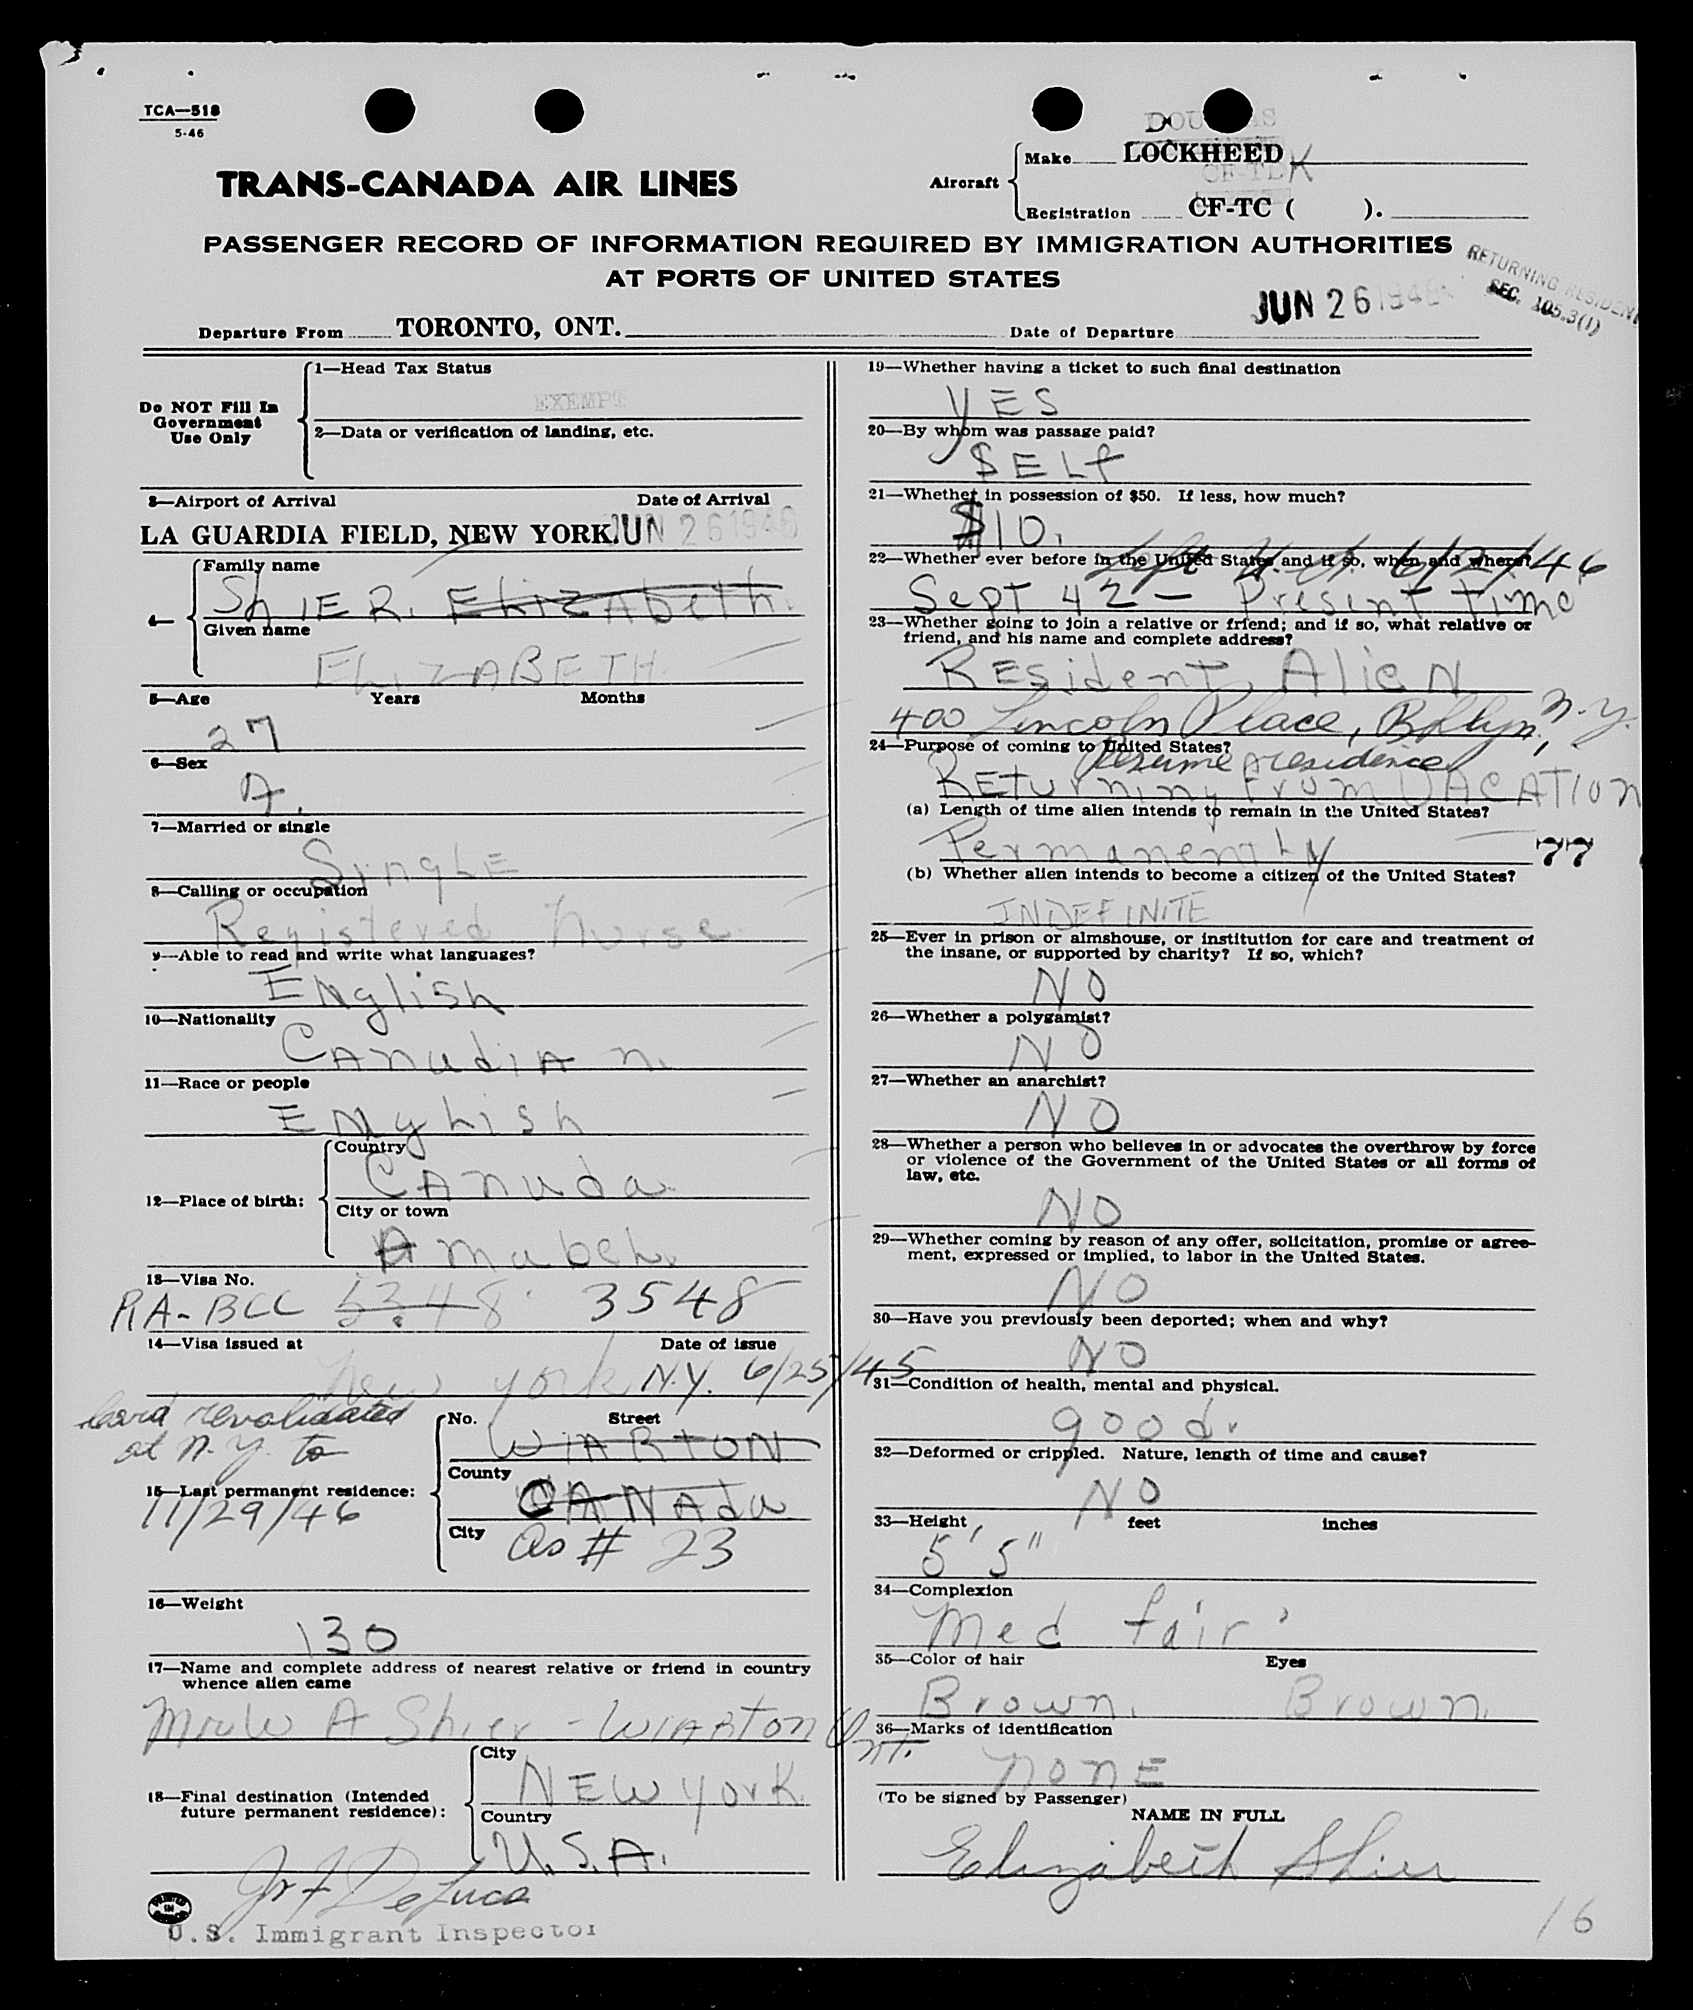 TCA—518
5-46
DOUGLAS
Make LOCKHEED
CF-TLK
TRANS-CANADA AIR LINES
Aircraft
Registration CF-TC ( ).
PASSENGER RECORD OF INFORMATION REQUIRED BY IMMIGRATION AUTHORITIES
AT PORTS OF UNITED STATES
RETURNING RESIDENT
SEC. 105.3(1)
Departure From TORONTO, ONT. Date of Departure JUN 26 1946
Do NOT Fill In
Government
Use Only
1—Head Tax Status
EXEMPT
2—Data or verification of landing, etc.
3—Airport of Arrival Date of Arrival
LA GUARDIA FIELD, NEW YORK JUN 26 1946
4—
Family name
ShIER. ElizAbeth.
Given name
EliZABETH
5—Age Years Months
27
6—Sex
F.
7—Married or single
SinglE
8—Calling or occupation
Registered Nurse
9—Able to read and write what languages?
ENglish
10—Nationality
CANadiAn.
11—Race or people
ENglish
12—Place of birth:
Country
CANada
City or town
Amabel.
13—Visa No.
RA-BCC 5348 3548
14—Visa issued at Date of issue
New york N.Y. 6/25/45
Card revalidated
at N.Y. to
11/29/46
15—Last permanent residence:
No. Street
WIARTON
County
CANAda
City
as # 23
16—Weight
130
17—Name and complete address of nearest relative or friend in country
whence alien came
Mr W A Shier - WIARton Ont.
18—Final destination (Intended
future permanent residence):
City
NEW york
Country
U.S.A.
Jr F DeLuca
U.S. Immigrant Inspector
19—Whether having a ticket to such final destination
yES
20—By whom was passage paid?
SELf
21—Whether in possession of $50. If less, how much?
$10.
22—Whether ever before in the United States and if so, when and where?
Left U.S. 6/21/46
Sept 42 - Present time
23—Whether going to join a relative or friend; and if so, what relative or
friend, and his name and complete address?
REsident AlieN
400 Lincoln Place, Bklyn, N.Y.
24—Purpose of coming to United States?
Resume residence
REturning From VACATION
(a) Length of time alien intends to remain in the United States?
Permanently
77
(b) Whether alien intends to become a citizen of the United States?
INDEFINITE
25—Ever in prison or almshouse, or institution for care and treatment of
the insane, or supported by charity? If so, which?
NO
26—Whether a polygamist?
NO
27—Whether an anarchist?
NO
28—Whether a person who believes in or advocates the overthrow by force
or violence of the Government of the United States or all forms of
law, etc.
NO
29—Whether coming by reason of any offer, solicitation, promise or agree-
ment, expressed or implied, to labor in the United States.
NO
30—Have you previously been deported; when and why?
NO
31—Condition of health, mental and physical.
good.
32—Deformed or crippled. Nature, length of time and cause?
NO
33—Height feet inches
5' 5"
34—Complexion
Med fair
35—Color of hair Eyes
Brown. Brown.
36—Marks of identification
nonE
(To be signed by Passenger)
NAME IN FULL
Elizabeth Shier
16